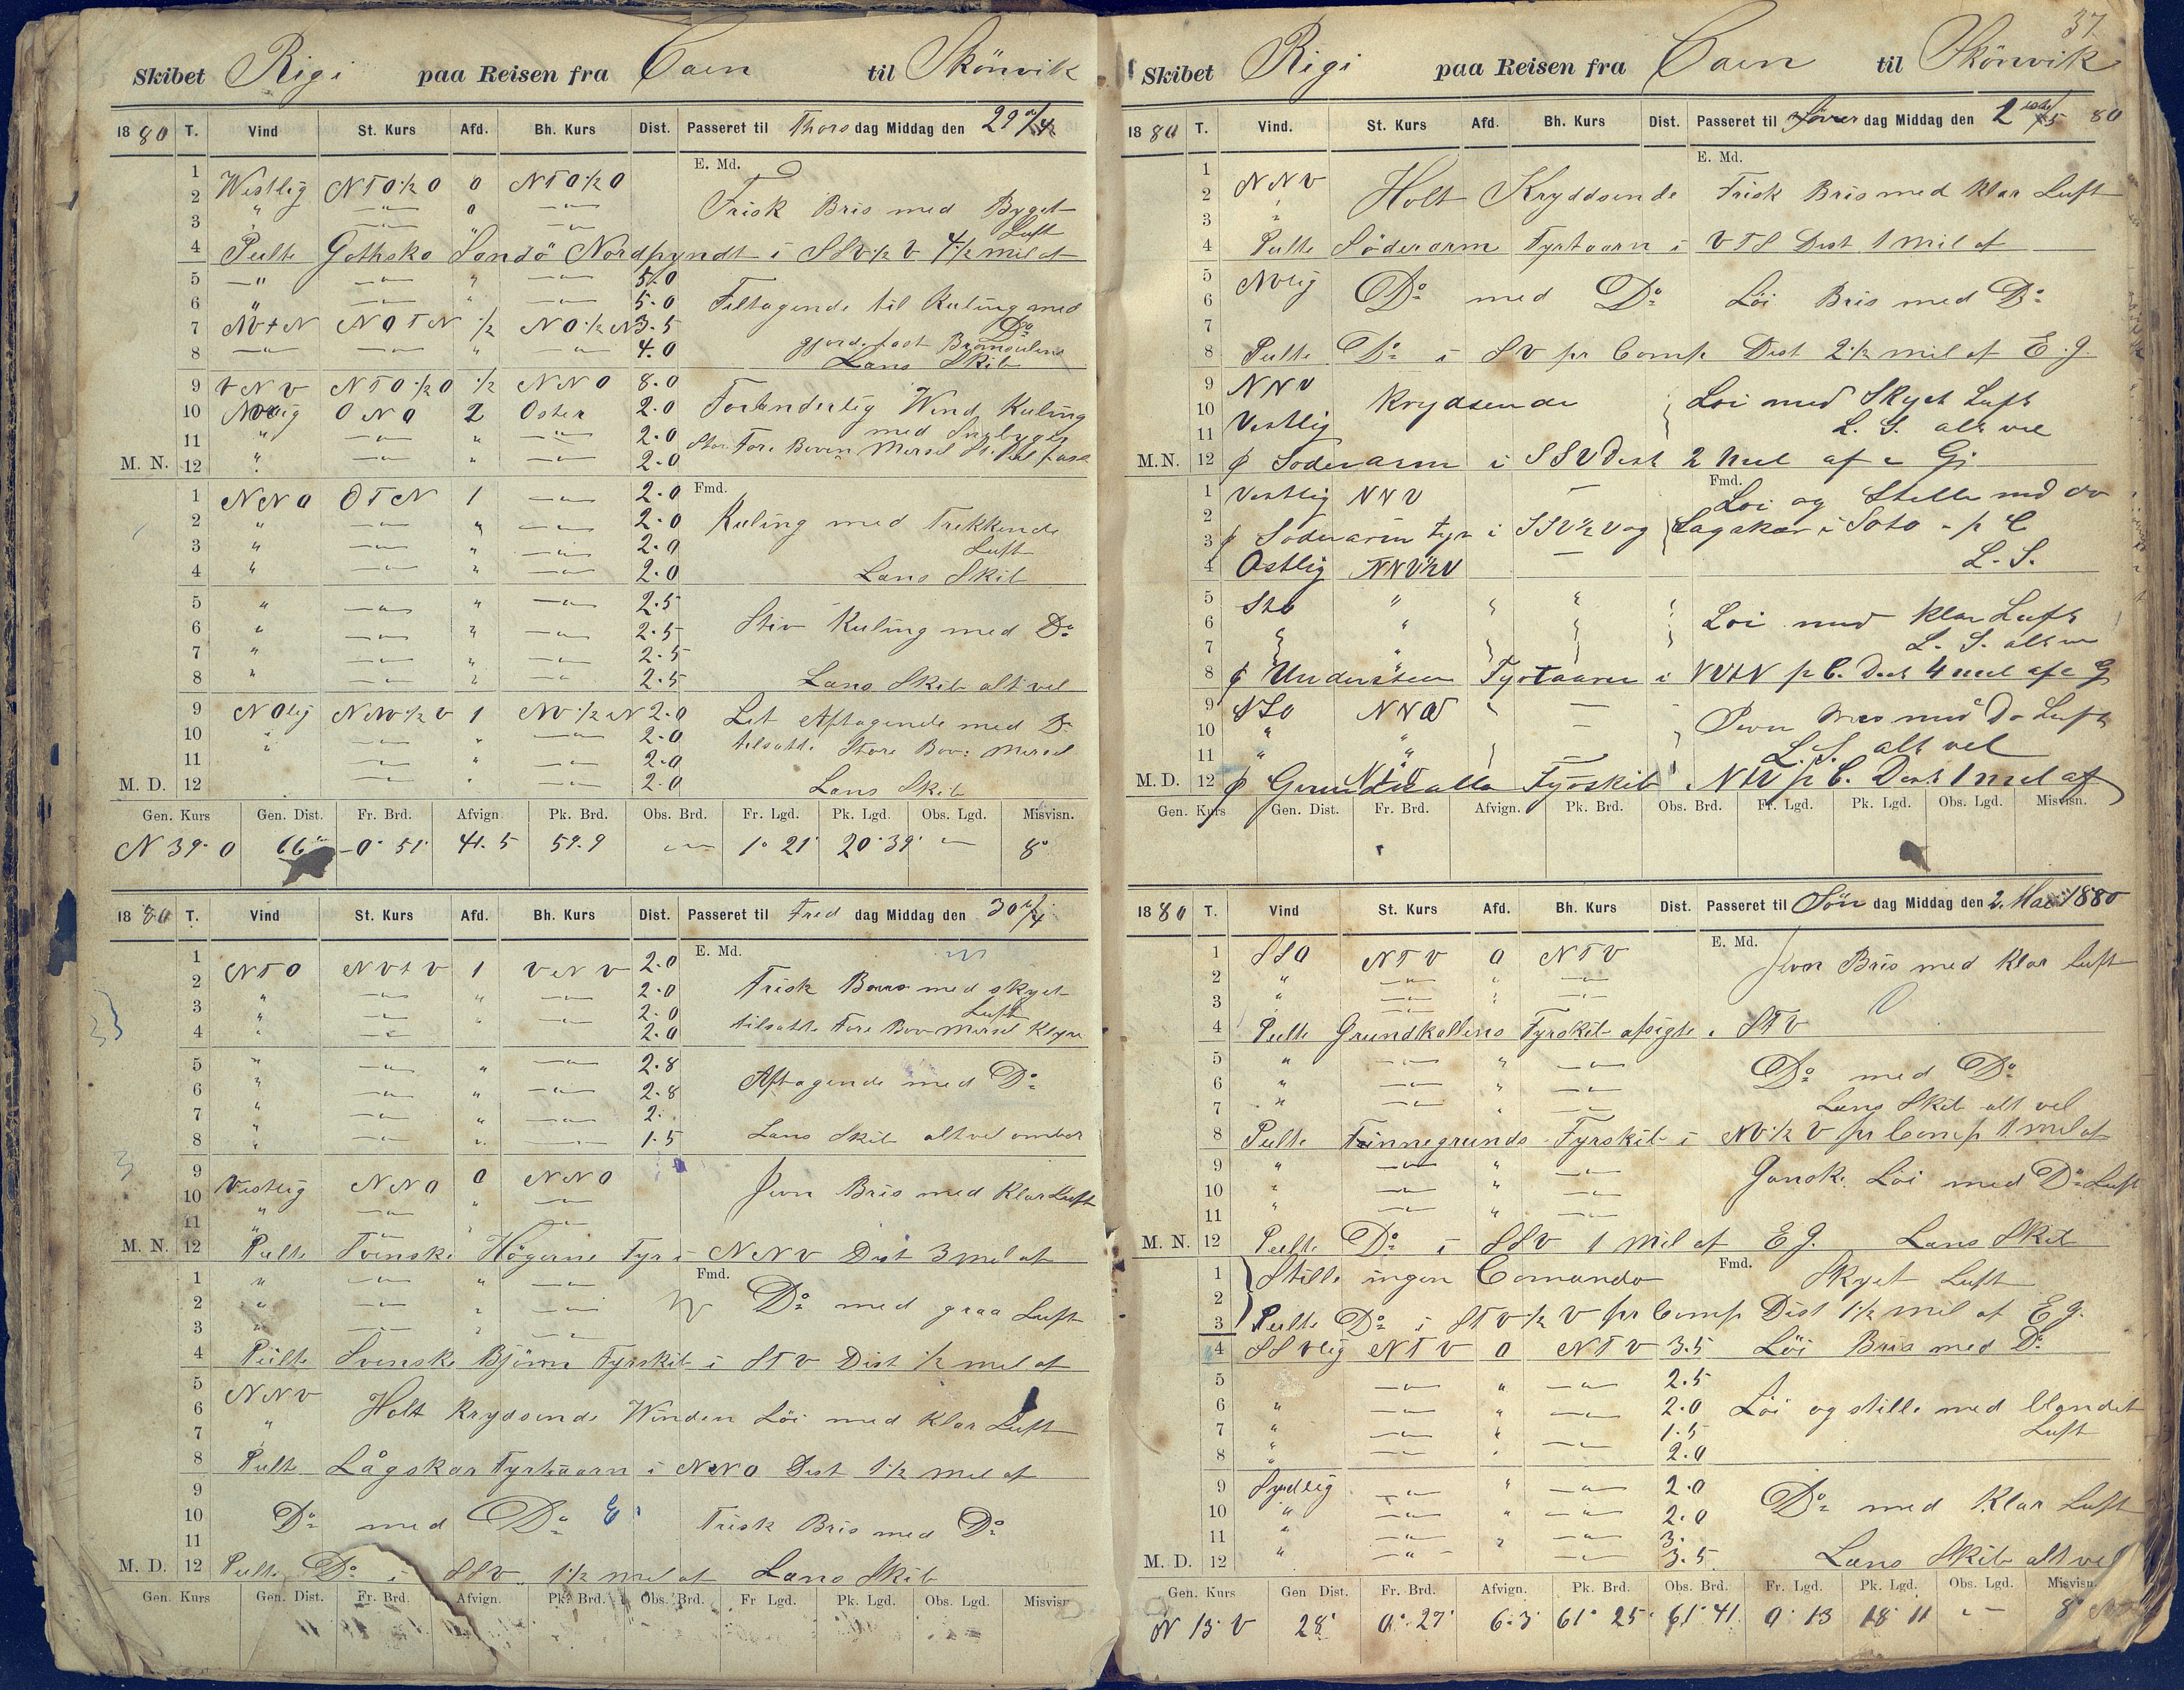 Skibet Rigi paa Reisen fra Caen til Skönvik
1880 T. Vind St. Kurs Afd. Bh. Kurs Dist. Passeret til Thorsdag Middag den 29/4
E. Md.
1 Westlig NTO½O 0 NTO½O
2 " —"— 0 —"—
Frisk Bris med Byget
3 " —"— " —"—
Luft
4 Peilte Gothska Sandö Nordpyndt i SSV½V 4½ mil af
5 —"— —"— " —"— 5.0
6 " —"— " —"— 5.0 Tiltagende til Kuling med
7 NVtN NOTN ½ NO½N 3.5 Do
8 —"— —"— " —"— 4.0 gjorde fast
Læns Skib
9 VNV NTO½O ½ NNO 8.0
10 NVlig ONO 2 Oster 2.0 Foranderlig Wind Kuling
11 " —"— " —"— 2.0 med Snebyger
M. N. 12 " —"— " —"— 2.0
Fmd.
1 NNO OTN 1 —"— 2.0
2 " —"— " —"— 2.0 Kuling med Trekkende
3 " —"— " —"— 2.0 Luft
4 " —"— " —"— 2.0 Læns Skib
5 " —"— " —"— 2.5
6 " —"— " —"— 2.5 Stiv Kuling med Do
7 " —"— " —"— 2.5
8 " —"— " —"— 2.5 Læns Skib alt vel
9 NOlig NNV½V 1 NV½N 2.0 Lit Aftagende med Do
10 " —"— " —"— 2.0 tilsatte Store Bov: Mersel
11 " —"— " —"— 2.0
M. D. 12 —"— " —"— 2.0 Læns Skib
Gen. Kurs Gen. Dist. Fr. Brd. Afvign. Pk. Brd. Obs. Brd. Fr. Lgd. Pk. Lgd. Obs. Lgd. Misvisn.
N 39° O 66 0° 51' 41.5 59.9 — 1° 21' 20° 39' — 8°
1880 T. Vind St. Kurs Afd. Bh. Kurs Dist. Passeret til Freddag Middag den 30/4
E. Md.
1 NTO NVtV 1 VNV 2.0
2 " —"— " —"— 2.0 Frisk Bris med skyet
3 " —"— " —"— 2.0 Luft
4 " —"— " —"— 2.0 tilsatte Fore Bov Mersel Klyver
5 " —"— " —"— 2.8
6 " —"— " —"— 2.8 Aftagende med Do
7 " —"— " —"— 2.
8 " —"— " —"— 1.5 Læns Skib alt vel ombor
9 Vestlig NNO 0 NNO
10 " —"— " —"— Jevn Bris med Klar Luft
11 " —"— " —"—
M. N. 12 Peilte Svenske Högerne Fyr i NNV Dist 3 mil af
Fmd.
1 " —"— " —"—
2 " —"— " —"— Do med graa Luft
3 " —"— " —"—
4 Peilte Svenske Björn Fyrskib i STV Dist ½ mil af
5 NNV
6 Holt Krydsende Winden Löi med Klar Luft
7 "
8 Peilte Lågskar Fyrtaarn i NNO Dist 1½ mil af
9
10 Do med Do Frisk Bris med Do
11
M. D. 12 Peilte Do i SSV 1½ mil af Læns Skib
Gen. Kurs Gen. Dist. Fr. Brd. Afvign. Pk. Brd. Obs. Brd. Fr. Lgd. Pk. Lgd. Obs. Lgd. Misvisn
37
Skibet Rigi paa Reisen fra Caen til Skönvik
1880 T. Vind. St. Kurs Afd. Bh. Kurs Dist. Passeret til Löverdag Middag den 1ste/5 80
E. Md.
1 NNV
2 Holt Kryddsende Frisk Bris med Klar Luft
3 "
4 Peilte Söderarm Fyrtaarn i VTS Dist 1 mil af
5 NVlig
6 Do med Do Löi Bris med Do
7
8 Peilte Do i SV pr Comp Dist 2½ mil af E. G.
9 NNV
10 Krydsende Loi med Skyet Luft
11 Vestlig L. S. alt vel
M. N. 12 Soderarm i SSV Dist 2 Mil af
Fmd.
1 Vestlig NNV — Loi og Stille med do
2
3 Soderarm Fyr i SSV½V og Lagskær i Soto p C
4 Ostlig NNV½V — L. S.
5 Sto "
6 " Loi med klar Luft
7 " L. S. alt vel
8 Understen Fyrtaarn i NVtN p C. Dist 4 mil af G
9 SSO NNV —
10 " " — Jevn Bris med Do Luft
11 " " L. S. alt vel
M. D. 12 Grundkalle Fyrskib NtV p C. Dist 1 mil af
Gen. Kurs Gen. Dist. Fr. Brd. Afvign. Pk. Brd. Obs. Brd. Fr. Lgd. Pk. Lgd. Obs. Lgd. Misvisn.
1880 T. Vind St. Kurs Afd. Bh. Kurs Dist. Passeret til Söndag Middag den 2. Mai 1880
E. Md.
1 SSO NTV 0 NTV Jevn Bris med Klar Luft
2 " —"— " —"—
3 " —"— " —"—
4 Peilte Grundkallens Fyrskib afsigte i STV
5 " —"— " —"—
6 " —"— " —"— Do med Do
7 " —"— " —"— Læns Skib alt vel
8 Peilte Finnegrunds Fyrskib i NV½V pr Comp 1 mil af
9 " —"— " —"—
10 " —"— " —"— Ganske Löi med Do Luft
11 " —"— " —"—
M. N. 12 Peilte Do i SSV 1 Mil af E G. Læns Skib
Fmd.
1 Stille ingen Comando Skyet Luft
2
3 Peilte Do i STV½V pr Comp Dist 1½ mil af E G.
4 SSVlig NTV 0 NTV 3.5 Löi Bris med Do
5 —"— " —"— 2.5
6 " —"— " —"— 2.0 Löi og stille med blandet
7 " —"— " —"— 1.5 Luft
8 " —"— " —"— 2.0
9 Sydlig —"— " —"— 2.0
10 " —"— " —"— 2.0 Do med Klar Luft
11 " —"— " —"— 3.
M. D. 12 " —"— —"— 3.5 Læns Skib alt vel
Gen. Kurs Gen Dist. Fr. Brd. Afvign. Pk. Brd. Obs. Brd. Fr. Lgd. Pk. Lgd. Obs. Lgd. Misvisn.
N 13° V 28' 0° 27' 6.3 61° 25' 61° 41' 0° 13 18° 11 — 8°